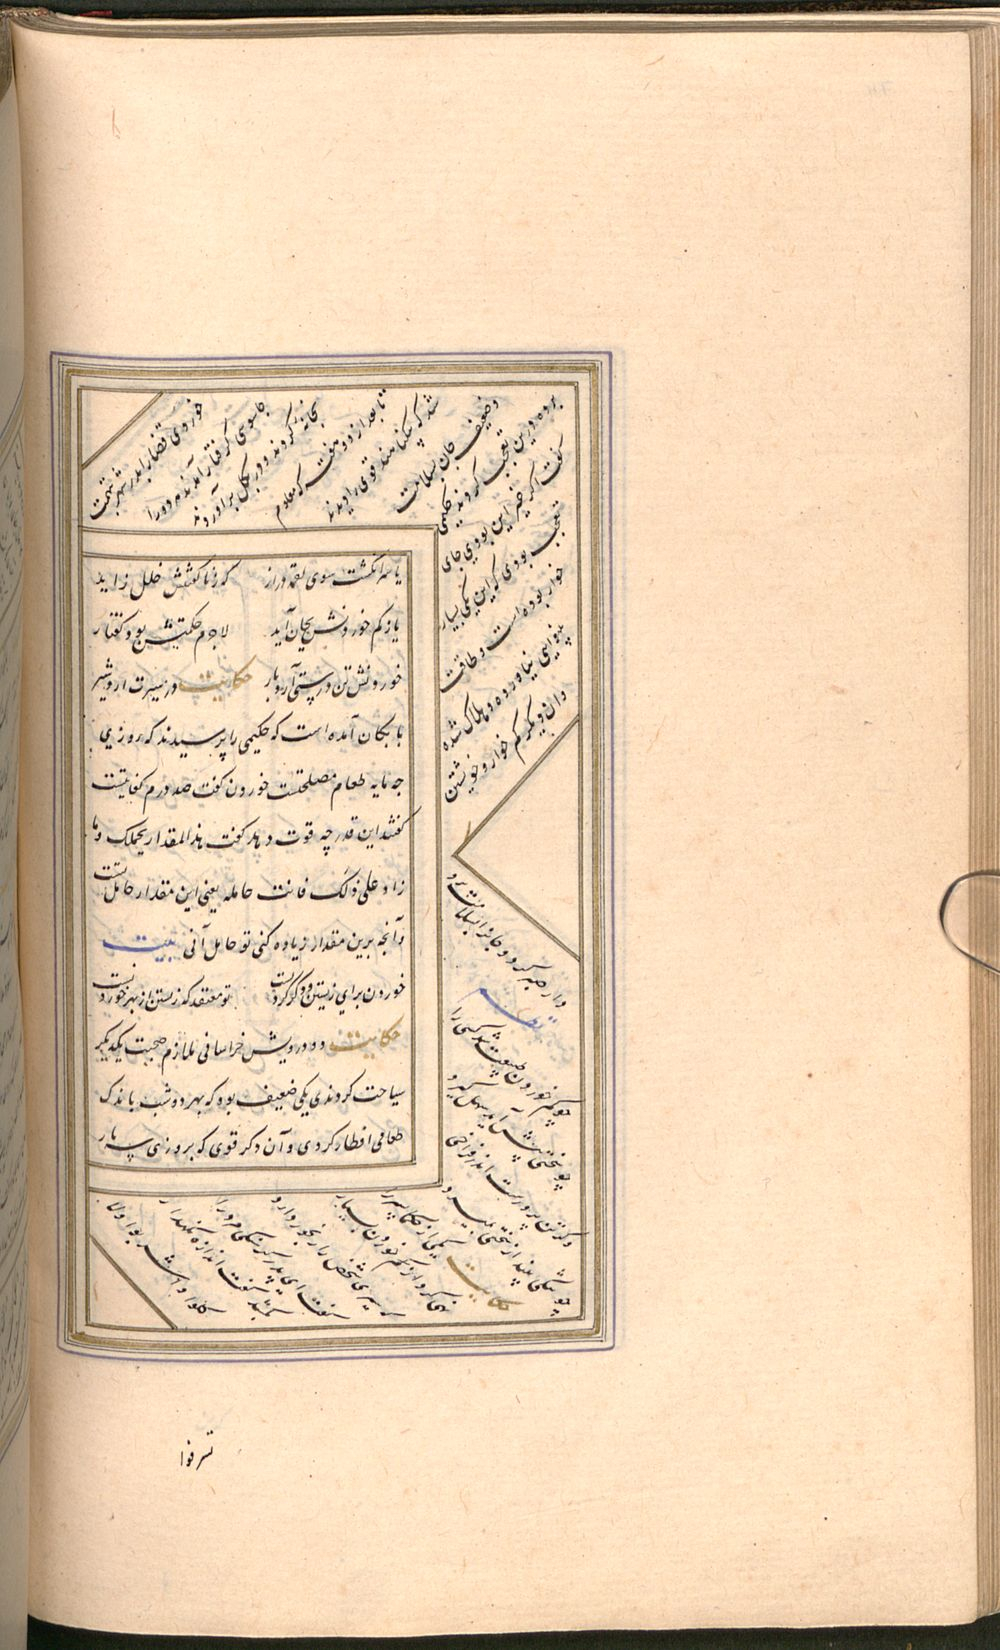 یا سرانگشت سوی لقمه دراز که ز ناگفتنش خلل زاید
یا ز کم خوردنش بجان آید لاجرم حکمتش بود گفتار
خوردنش تن درستی آرد بار حکایت در سیرت اردشیر
بابکان آمده است که حکیمی را پرسیدند که روزی
چه مایه طعام مصلحتست خوردن گفت صد درم کفایتست
گفتند این قدر چه قوت دهد گفت هذا المقدار یحملک وما
زاد علی ذلک فانت حامله یعنی این مقدار حاملتست
وآنچه برین مقدار زیاده کنی تو حامل آنی بیت
خوردن برای زیستن و ذکر کردنست تو معتقد که زیستن از بهر خوردنست
حکایت دو درویش خراسانی ملازم صحبت یکدیگر
سیاحت کردندی یکی ضعیف بود که بهر دو شب باندک
طعامی افطار کردی و آن دگر قوی که بروزی سه بار
خوردی قضا را بدر شهر بتهمت
جاسوسی گرفتار آمدند هر دو را
بخانه کردند و در بگل برآوردند
تا بعد از دو هفته که معلوم
شد که بیگناهند قوی را دیدند
وضعیف جان بسلامت
برده درین تعجب کردند حکیمی
گفت اگر خبر این بودی جای
تعجب بودی که این یکی بسیار
خوار بوده است و طاقت
بینوایی نیاورده و هلاک شده
وان دیگر کم خوار و خویشتن
دار صبر کرد و جان بسلامت برد
قطعه
چو کم خوردن طبیعت شد کسی را
چو سختی پیش آید سهل گیرد
وگر تن پرورست اندر فراخی
چو تنگی بیند از سختی بمیرد
حکایت یکی از حکما پسر را
نهی کرد از کم خوردن بسیار
که سیری شخص را رنجور دارد
گفت ای پدر گرسنگی مردم را
گفت اندازه نگهدار
کلوا واشربوا ولا
تسرفوا